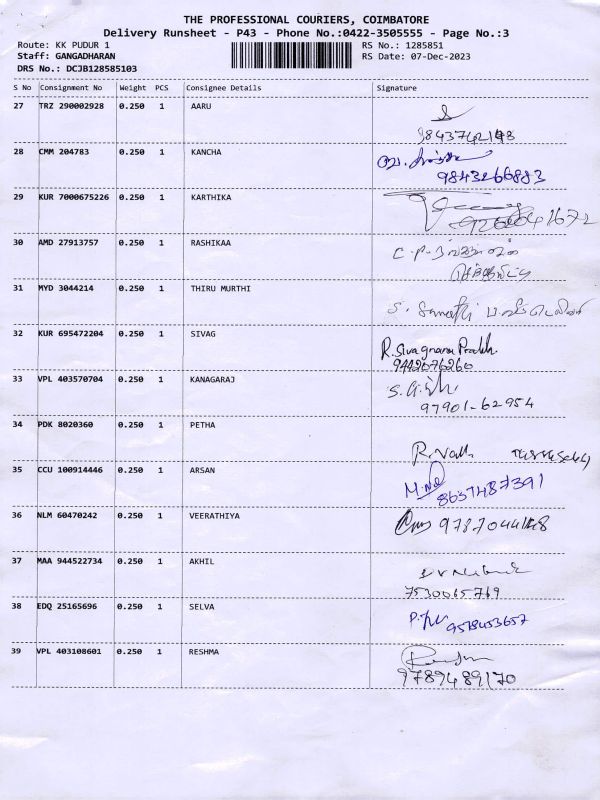 THE PROFESSIONAL COURIERS, COIMBATORE
Delivery Runsheet - P43 - Phone No.:0422-3505555 - Page No.:3
Route: KK PUDUR 1 RS No.: 1285851
Staff: GANGADHARAN RS Date: 07-Dec-2023
DRS No.: DCJB128585103
S No Consignment No Weight PCS Consignee Details Signature
27 TRZ 290002928 0.250 1 AARU
28 CMM 204783 0.250 1 KANCHA
9843266883
29 KUR 7000675226 0.250 1 KARTHIKA
30 AMD 27913757 0.250 1 RASHIKAA
C.P.
31 MYD 3044214 0.250 1 THIRU MURTHI
S.
32 KUR 695472204 0.250 1 SIVAG
R.Sivagnana
9442076260
33 VPL 403570704 0.250 1 KANAGARAJ
97901-62954
34 PDK 8020360 0.250 1 PETHA
35 CCU 100914446 0.250 1 ARSAN
8637487391
36 NLM 60470242 0.250 1 VEERATHIYA
37 MAA 944522734 0.250 1 AKHIL
7530065769
38 EDQ 25165696 0.250 1 SELVA
39 VPL 403108601 0.250 1 RESHMA
9789489170